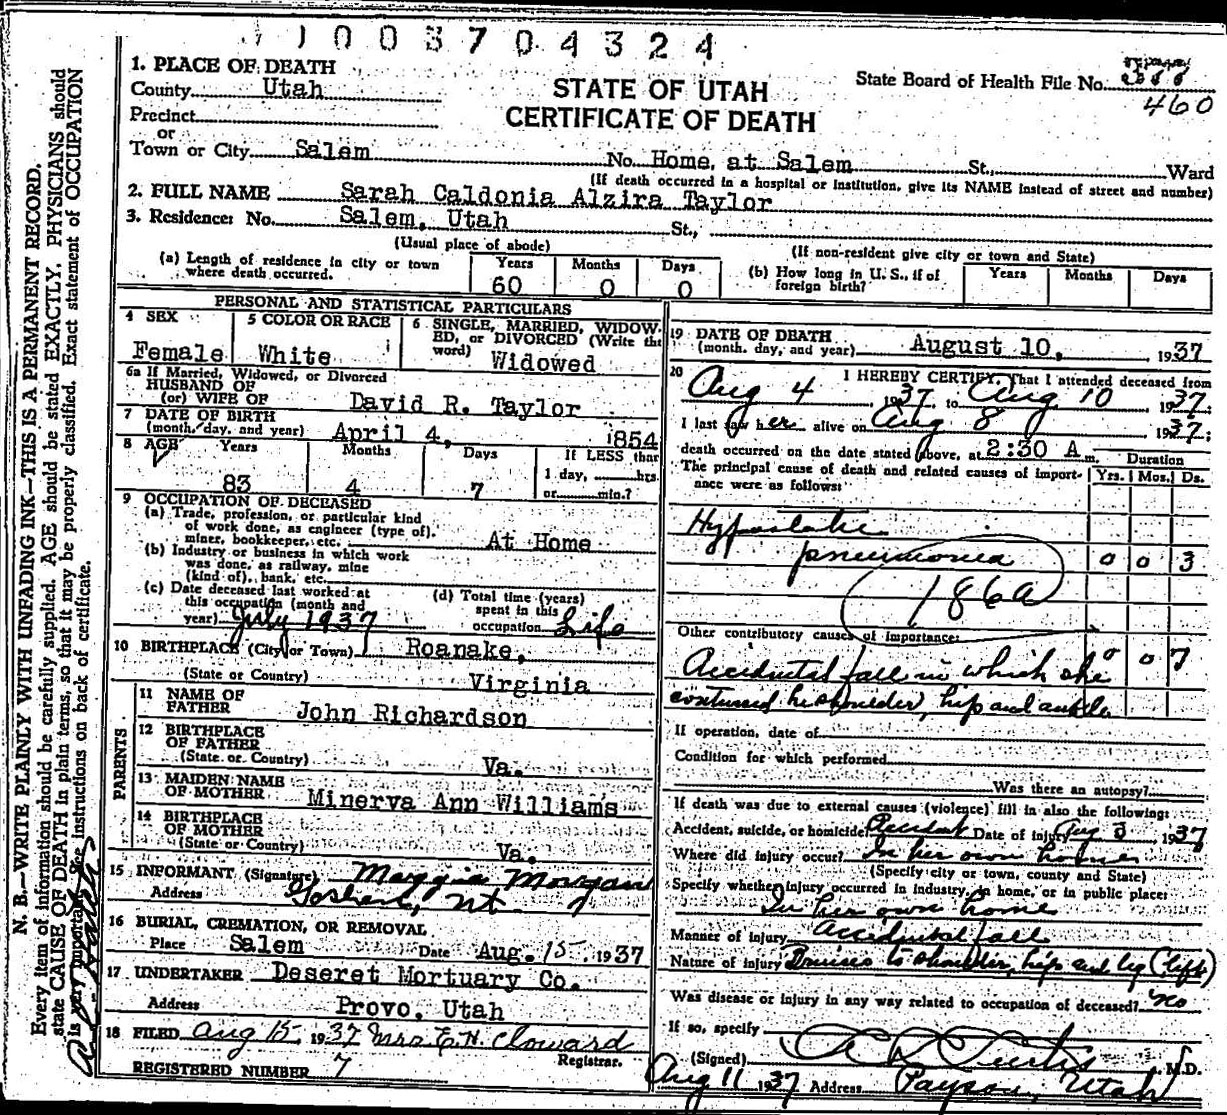 1003704324
1. PLACE OF DEATH
County Utah
STATE OF UTAH
CERTIFICATE OF DEATH
State Board of Health File No.
460
Precinct
or
Town or City Salem No. Home, at Salem St., Ward
(If death occurred in a hospital or institution, give its NAME instead of street and number)
2. FULL NAME Sarah Caldonia Alzira Taylor
3. Residence: No. Salem, Utah St.,
(Usual place of abode) (If non-resident give city or town and State)
(a) Length of residence in city or town where death occurred. Years 60 Months 0 Days 0
(b) How long in U. S., if of foreign birth? Years Months Days
PERSONAL AND STATISTICAL PARTICULARS
4 SEX Female
5 COLOR OR RACE White
6 SINGLE, MARRIED, WIDOWED, or DIVORCED (Write the word) Widowed
6a If Married, Widowed, or Divorced
HUSBAND OF
(or) WIFE OF David R. Taylor
7 DATE OF BIRTH
(month, day, and year) April 4, 1854
8 AGE Years 83 Months 4 Days 7 If LESS than 1 day, hrs. or min.?
9 OCCUPATION OF DECEASED
(a) Trade, profession, or particular kind
of work done, as engineer (type of),
miner, bookkeeper, etc. At Home
(b) Industry or business in which work
was done, as railway, mine
(kind of), bank, etc.
(c) Date deceased last worked at
this occupation (month and
year) July 1937
(d) Total time (years)
spent in this
occupation Life
10 BIRTHPLACE (City or Town) Roanake,
(State or Country) Virginia
PARENTS
11 NAME OF
FATHER John Richardson
12 BIRTHPLACE
OF FATHER
(State or Country) Va.
13 MAIDEN NAME
OF MOTHER Minerva Ann Williams
14 BIRTHPLACE
OF MOTHER
(State or Country) Va.
15 INFORMANT (Signature) Maggie Morgan
Address Goshen, Ut
16 BURIAL, CREMATION, OR REMOVAL
Place Salem Date Aug. 15 1937
17 UNDERTAKER Deseret Mortuary Co.
Address Provo, Utah
18 FILED Aug 15, 1937 Mrs E. H. Cloward
Registrar.
REGISTERED NUMBER 7
19 DATE OF DEATH
(month, day, and year) August 10, 1937
20 I HEREBY CERTIFY, That I attended deceased from
Aug 4 1937, to Aug 10 1937;
I last saw her alive on Aug 8 1937;
death occurred on the date stated above, at 2:30 A m.
Duration
The principal cause of death and related causes of importance were as follows: Yrs. Mos. Ds.
Hypostatic
pneumonia 0 0 3
186a
Other contributory causes of importance:
Accidental fall in which she 0 0 7
contused her shoulder, hip and ankle
If operation, date of
Condition for which performed
Was there an autopsy?
If death was due to external causes (violence) fill in also the following:
Accident, suicide, or homicide? Accident Date of injury Aug 3 1937
Where did injury occur? In her own home
(Specify city or town, county and State)
Specify whether injury occurred in industry, in home, or in public place:
In her own home
Manner of injury Accidental fall
Nature of injury Bruises to shoulder, hip and leg (left)
Was disease or injury in any way related to occupation of deceased? No
If so, specify
(Signed) Curtis M.D.
Aug 11 1937 Address Payson, Utah
N. B.—WRITE PLAINLY WITH UNFADING INK—THIS IS A PERMANENT RECORD.
Every item of information should be carefully supplied. AGE should be stated EXACTLY. PHYSICIANS should
state CAUSE OF DEATH in plain terms, so that it may be properly classified. Exact statement of OCCUPATION
is very important. See instructions on back of certificate.